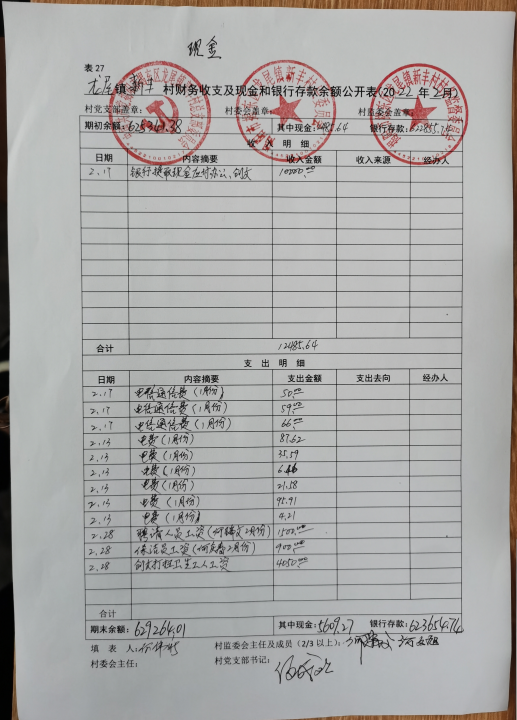 现金
表 27
龙尾镇新丰村财务收支及现金和银行存款余额公开表(2022年2月)
村党支部盖章: 村委会盖章: 村监委会盖章:
期初余额: 625341.38 其中现金: 2485.64 银行存款: 622855.74
收 入 明 细
日期 内容摘要 收入金额 收入来源 经办人
2.17 银行提取现金应付办公、创文 10000.00
合计 12485.64
支 出 明 细
日期 内容摘要 支出金额 支出去向 经办人
2.17 电信通信费(1月份) 50.00
2.17 电信通信费(1月份) 59.00
2.17 电信通信费(1月份) 66.00
2.13 电费(1月份) 87.62
2.13 电费(1月份) 35.59
2.13 电费(1月份) 6.46
2.13 电费(1月份) 21.58
2.13 电费(1月份) 95.91
2.13 电费(1月份) 4.21
2.28 聘请人员工资(何锦文2月份) 1500.00
2.28 保洁员工资(2月份) 900.00
2.28 创文打扫卫生工人工资 4050.00
合计
期末余额: 629264.01 其中现金: 5609.27 银行存款: 623654.74
填 表 人: 村监委会主任及成员(2/3以上):
村委会主任: 村党支部书记: